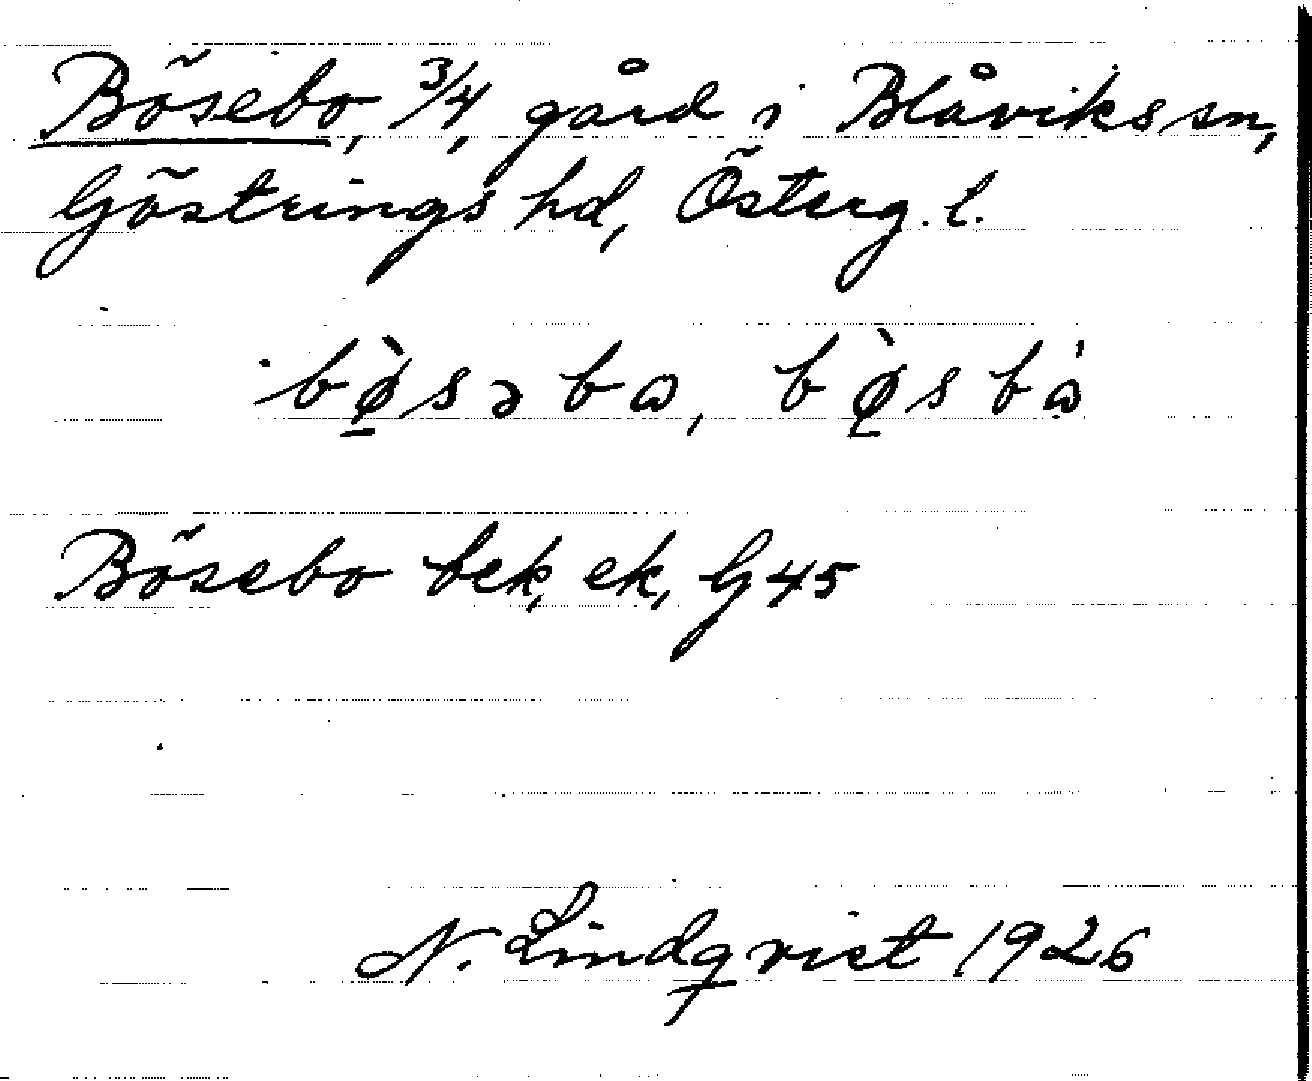 Bösebo, 3/4, gård i Blåviks sn,
Göstrings hd, Österg. l.
bø̠̀səbɷ, bø̠̀sbɷ̀
Bösebo bek, ek, G 45
N. Lindqvist 1926